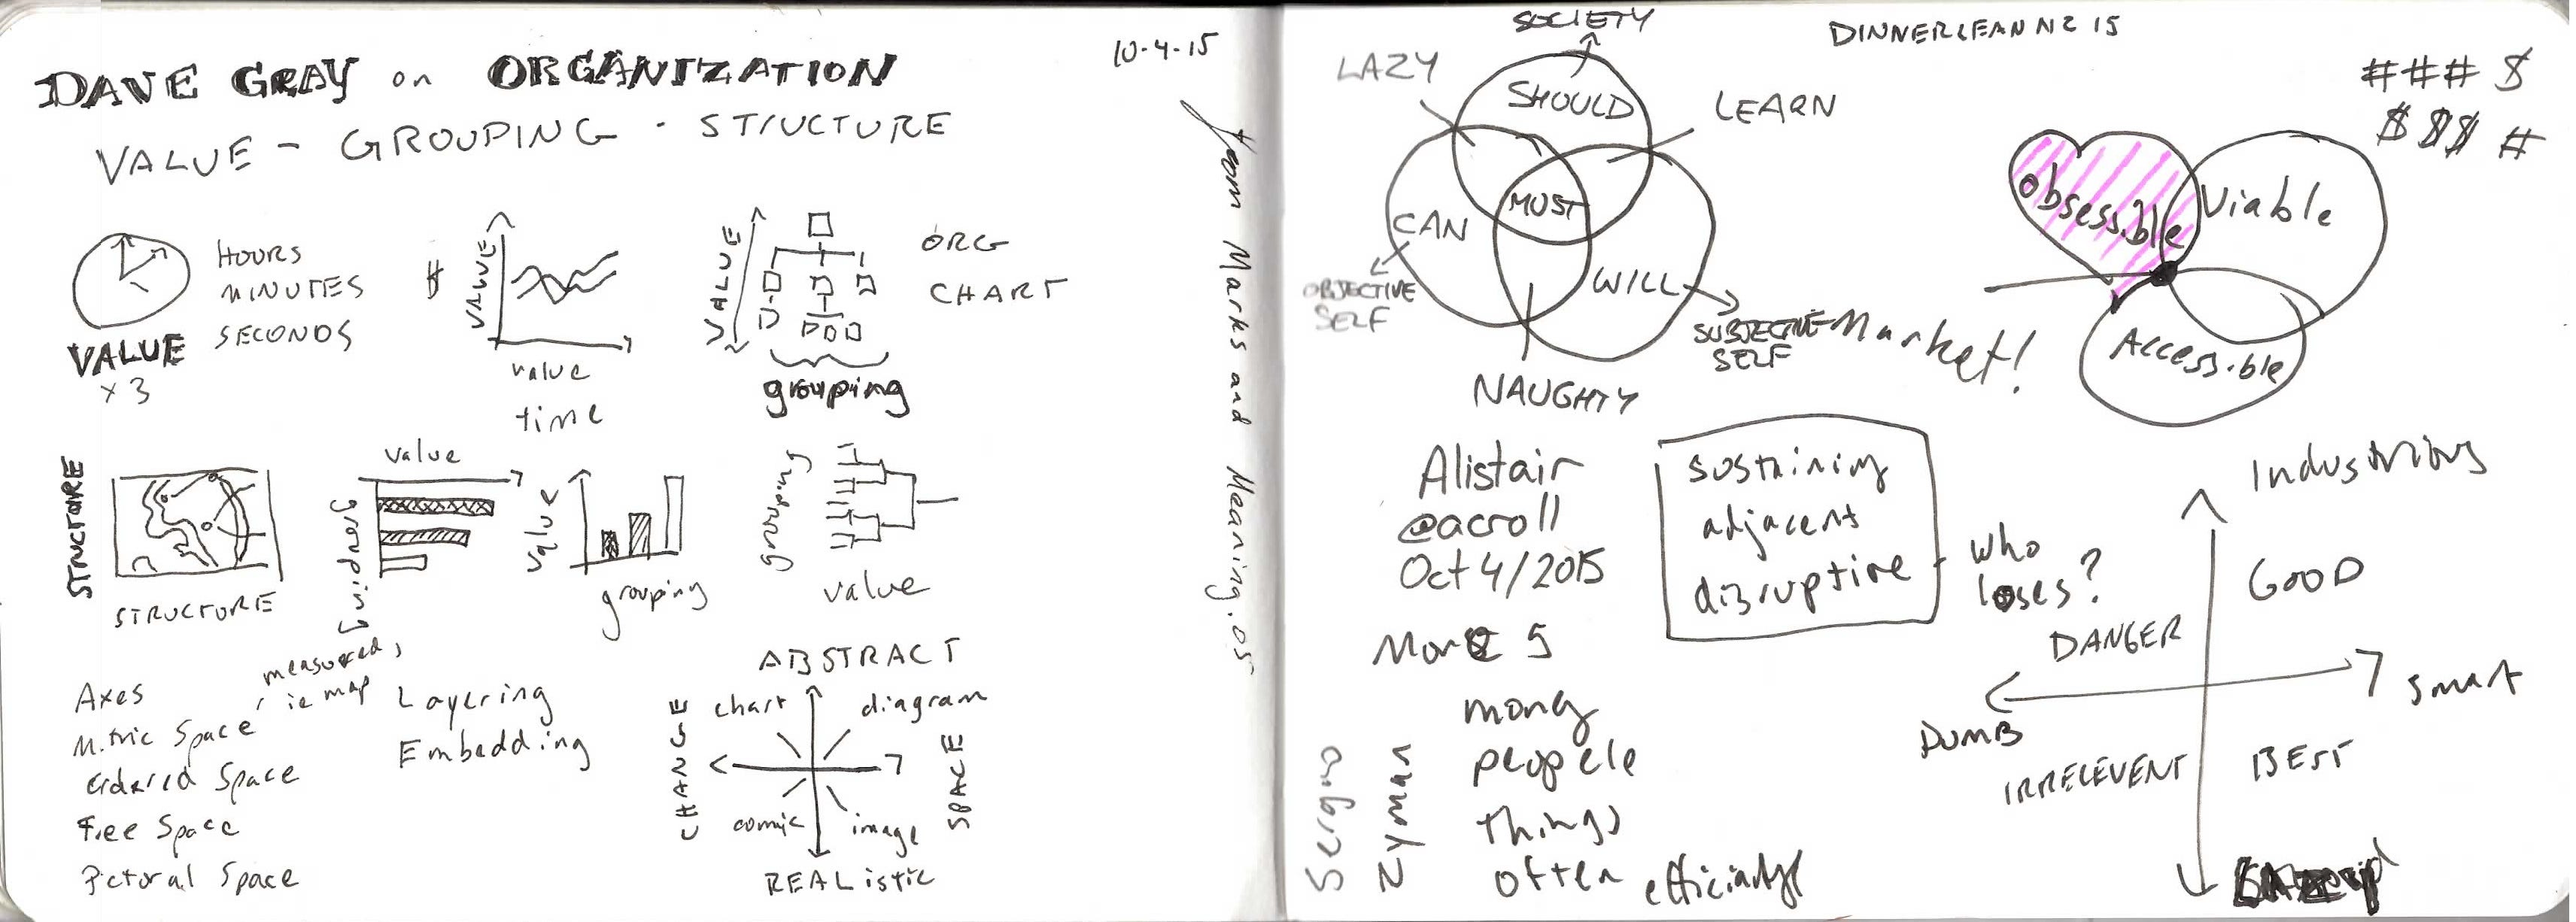 DAVE GRAY on ORGANIZATION
10-4-15
VALUE - GROUPING - STRUCTURE
from Marks and Meaning.05
HOURS
MINUTES
SECONDS
VALUE
x 3
$
VALUE
value
time
VALUE
ORG
CHART
grouping
STRUCTURE
STRUCTURE
value
grouping
value
grouping
grouping
value
Axes
Metric Space
measured,
ie map
Ordered Space
Free Space
Pictoral Space
Layering
Embedding
ABSTRACT
chart
diagram
CHANGE
SPACE
comic
image
REALISTIC
SOCIETY
DINNERLEANNZ 15
LAZY
SHOULD
LEARN
# # # $
$ $ $ #
CAN
MUST
WILL
OBJECTIVE
SELF
SUBJECTIVE
SELF
NAUGHTY
obsessible
Viable
Accessible
Market!
Alistair
@acroll
Oct 4/2015
sustaining
adjacent
disruptive
who
loses?
More 5
money
peopele
things
often
Sergio
Zyman
Industrious
GOOD
DANGER
smart
DUMB
IRRELEVENT
BEST